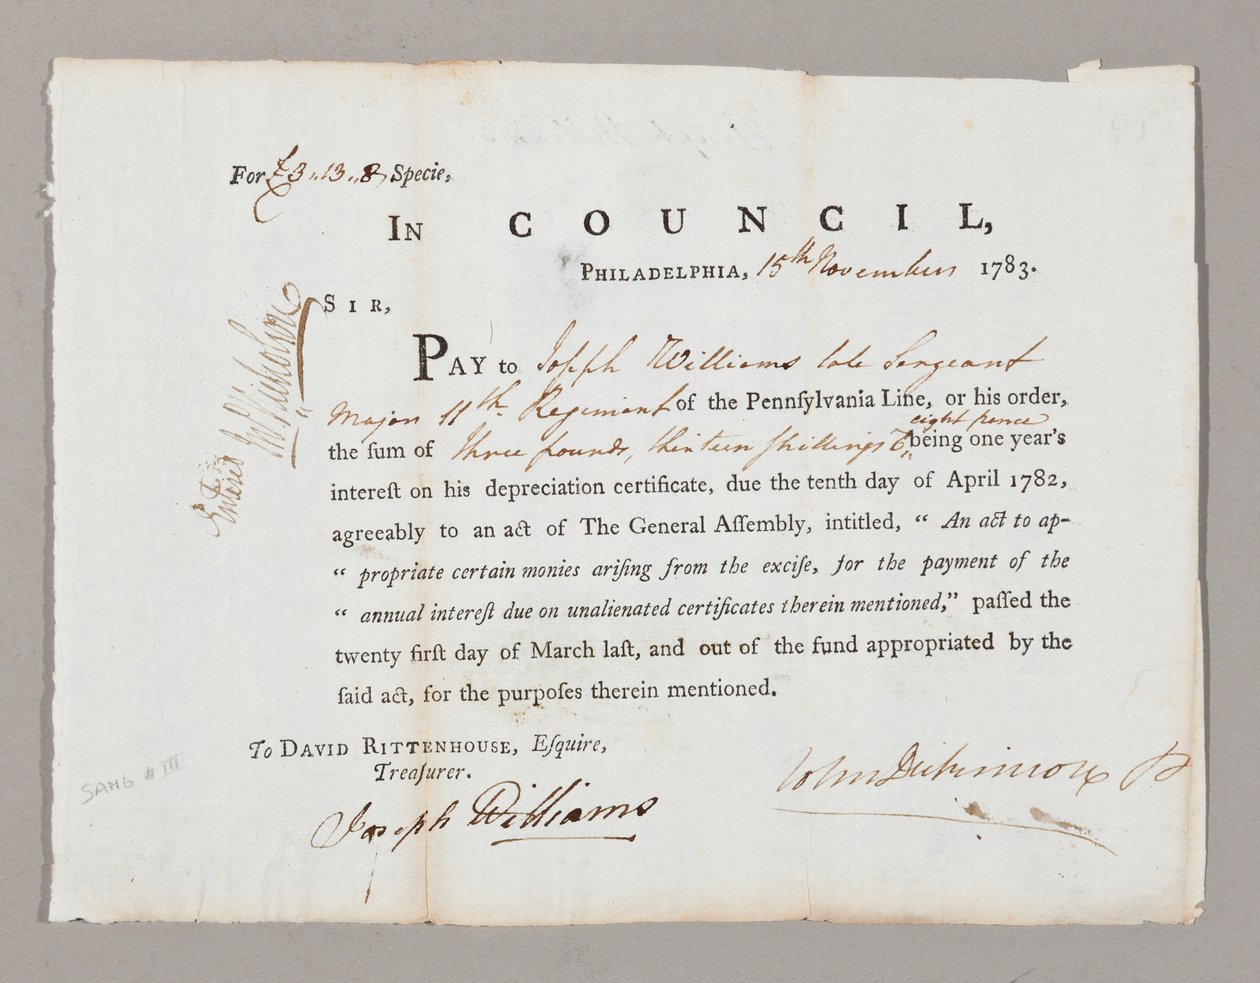 For £3,,13,,8, Specie,
IN COUNCIL,
PHILADELPHIA, 15th November 1783.
SIR,
PAY to Joseph Williams late Sergeant
Major 11th. Regiment of the Pennſylvania Line, or his order,
eight pence
the ſum of Three pounds, thirteen ſhillings & being one year's
intereſt on his depreciation certificate, due the tenth day of April 1782,
agreeably to an act of The General Aſſembly, intitled, “ An act to ap-
“ propriate certain monies ariſing from the exciſe, for the payment of the
“ annual intereſt due on unalienated certificates therein mentioned,” paſſed the
twenty firſt day of March laſt, and out of the fund appropriated by the
ſaid act, for the purpoſes therein mentioned.
To DAVID RITTENHOUSE, Eſquire,
Treaſurer.
Joseph Williams
John Dickinson
Entered
Jno Nicholson
SAMG # III